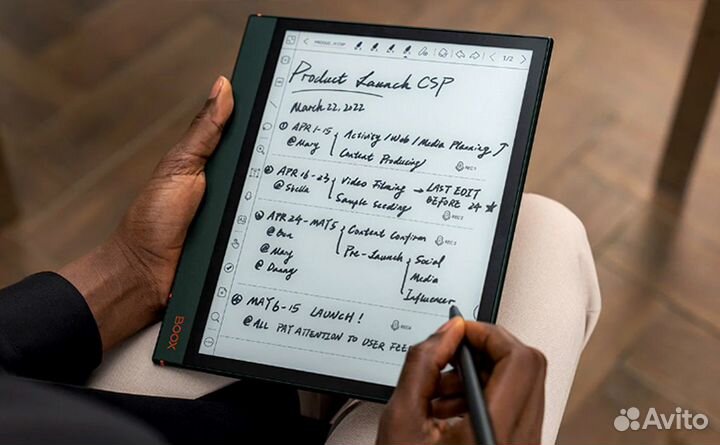 PRODUC...H CSP
1/2
Product Launch CSP
March 22, 2022
① APR 1-15 Activity / Web / Media Planning
@Mary Content Producing
REC 1
② APR 16-23 Video Filming → LAST EDIT
@Stella Sample Seeding BEFORE 24 ★
REC 2
③ APR 24-MAY 5 Content Confirm
REC 3
@Ben Pre-Launch Social
@Mary Media
@Danny Influencer
④ MAY 6-15 LAUNCH!
REC 4
@ALL PAY ATTENTION TO USER FEE
BOOX
Avito